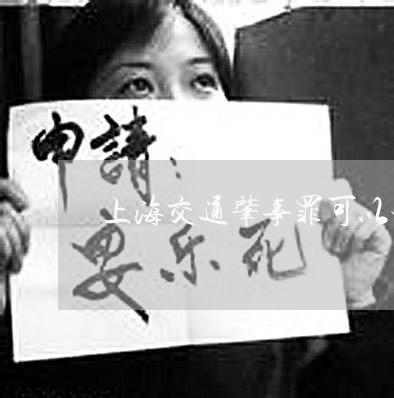 申請：
上海交通肇事罪可以
安乐死